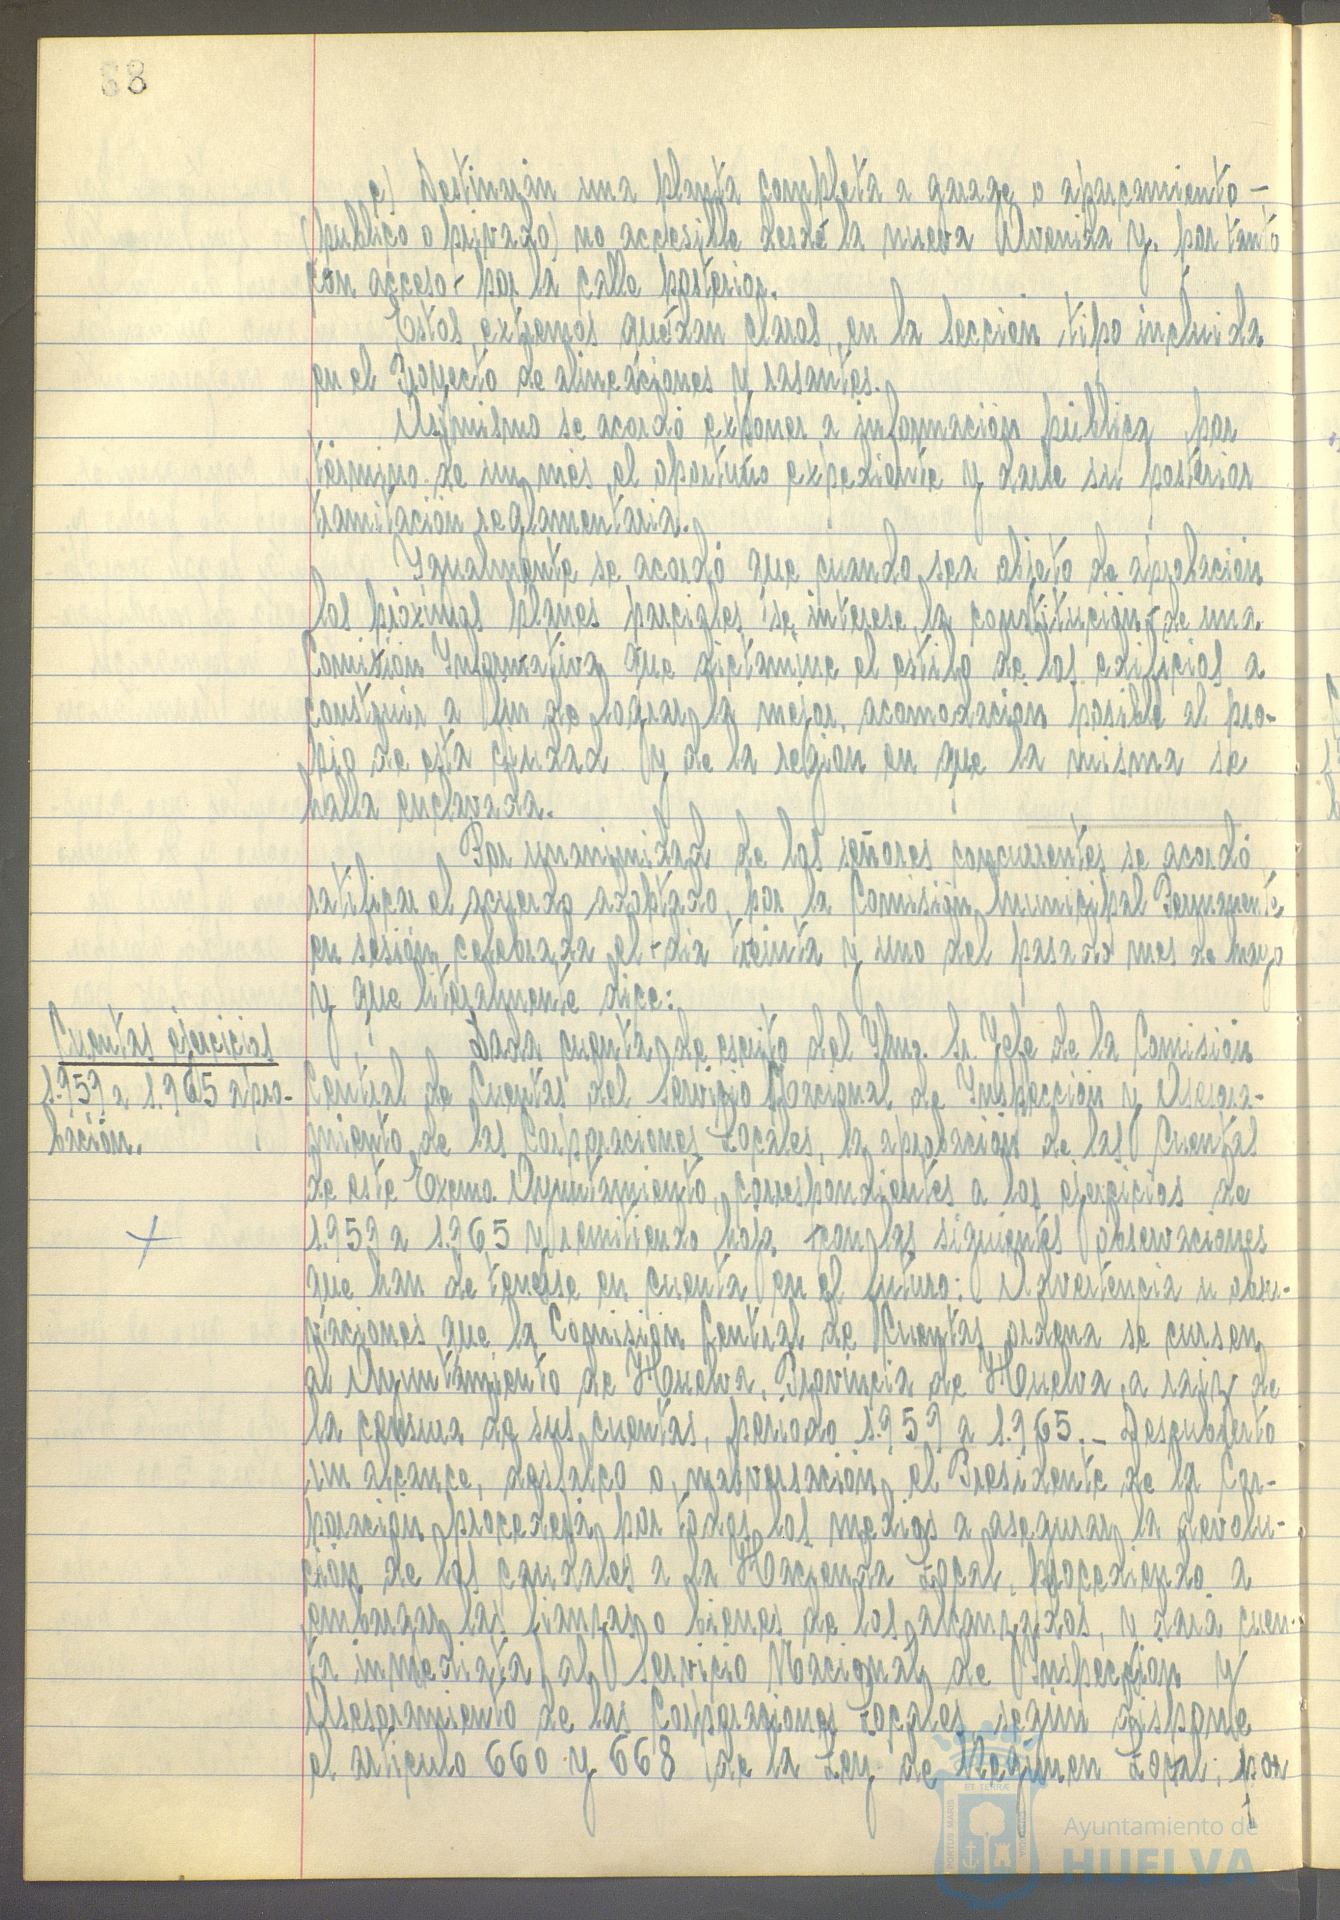 88
c) Destinarán una planta completa a garage o aparcamiento -
(público o privado) no accesible desde la nueva Avenida y, por tanto
con acceso - por la calle posterior.
Estos extremos quedan claros, en la sección tipo incluida
en el Proyecto de alineaciones y rasantes.
Asimismo se acordó exponer a información pública por
término de un mes el oportuno expediente y darle su posterior
tramitación reglamentaria.
Igualmente se acordó que cuando sea objeto de aprobación
los próximos planes parciales se interese la constitución de una
Comisión Informativa que dictamine el estilo de los edificios a
construir a fin de lograr la mejor acomodación posible al pro-
pio de esta ciudad y de la región en que la misma se
halla enclavada.
Por unanimidad de los señores concurrentes se acordó
ratificar el acuerdo adoptado, por la Comisión Municipal Permanente
en sesión celebrada el - día treinta y uno del pasado mes de mayo
y que literalmente dice:
Cuentas ejercicios
1.959 a 1.965 apro-
bación.
Dada cuenta de escrito del Iltmo. Sr. Jefe de la Comisión
Central de Cuentas del Servicio Nacional de Inspección y Asesora-
miento de las Corporaciones Locales, la aprobación de las Cuentas
de este Excmo. Ayuntamiento, correspondientes a los ejercicios de
1.959 a 1.965 y remitiendo hoja con las siguientes observaciones
que han de tenerse en cuenta en el futuro: Advertencia u obser-
vaciones que la Comisión Central de Cuentas ordena se cursen
al Ayuntamiento de Huelva, Provincia de Huelva, a raiz de
la censura de sus cuentas, período 1.959 a 1.965.- Descubierto
un alcance, desfalco o malversación, el Presidente de la Cor-
poración procederá por todos los medios a asegurar la devolu-
ción de los caudales a la Hacienda Local, procediendo a
embargar las fianzas o bienes de los alcanzados, y dará cuen-
ta inmediata al Servicio Nacional de Inspección y
Asesoramiento de las Corporaciones Locales, según dispone
el artículo 660 y 668 de la Ley de Régimen Local; por
Ayuntamiento de
HUELVA